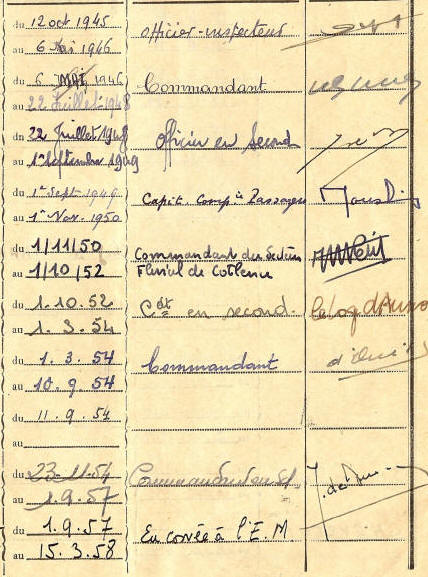 du 12 oct 1945 officier-inspecteur
au 6 Mai 1946
du 6 MAI 1946 Commandant
au 22 Juillet 1948
du 22 Juillet 1948 Officier en Second
au 1er Septembre 1949
du 1er Sept 1949 Capit. Comp ie Passagers
au 1er Nov. 1950
du 1/11/50 Commandant du Secteur
au 1/10/52 Fluvial de Coblence
du 1.10.52 Cdt en second.
au 1.3.54
du 1.3.54 Commandant
au 10.9.54
du 11.9.54
au
du 23.11.54 Commandant en
au 1.9.57
du 1.9.57 En corvée à l'E.M
au 15.3.58